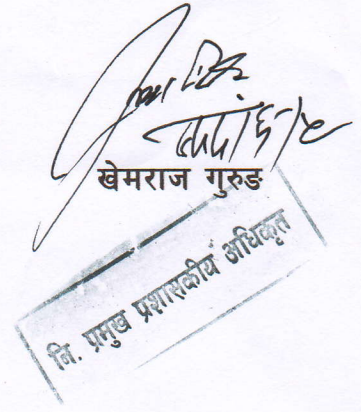 खेमराज गुरुङ
नि. प्रमुख प्रशासकीय अधिकृत